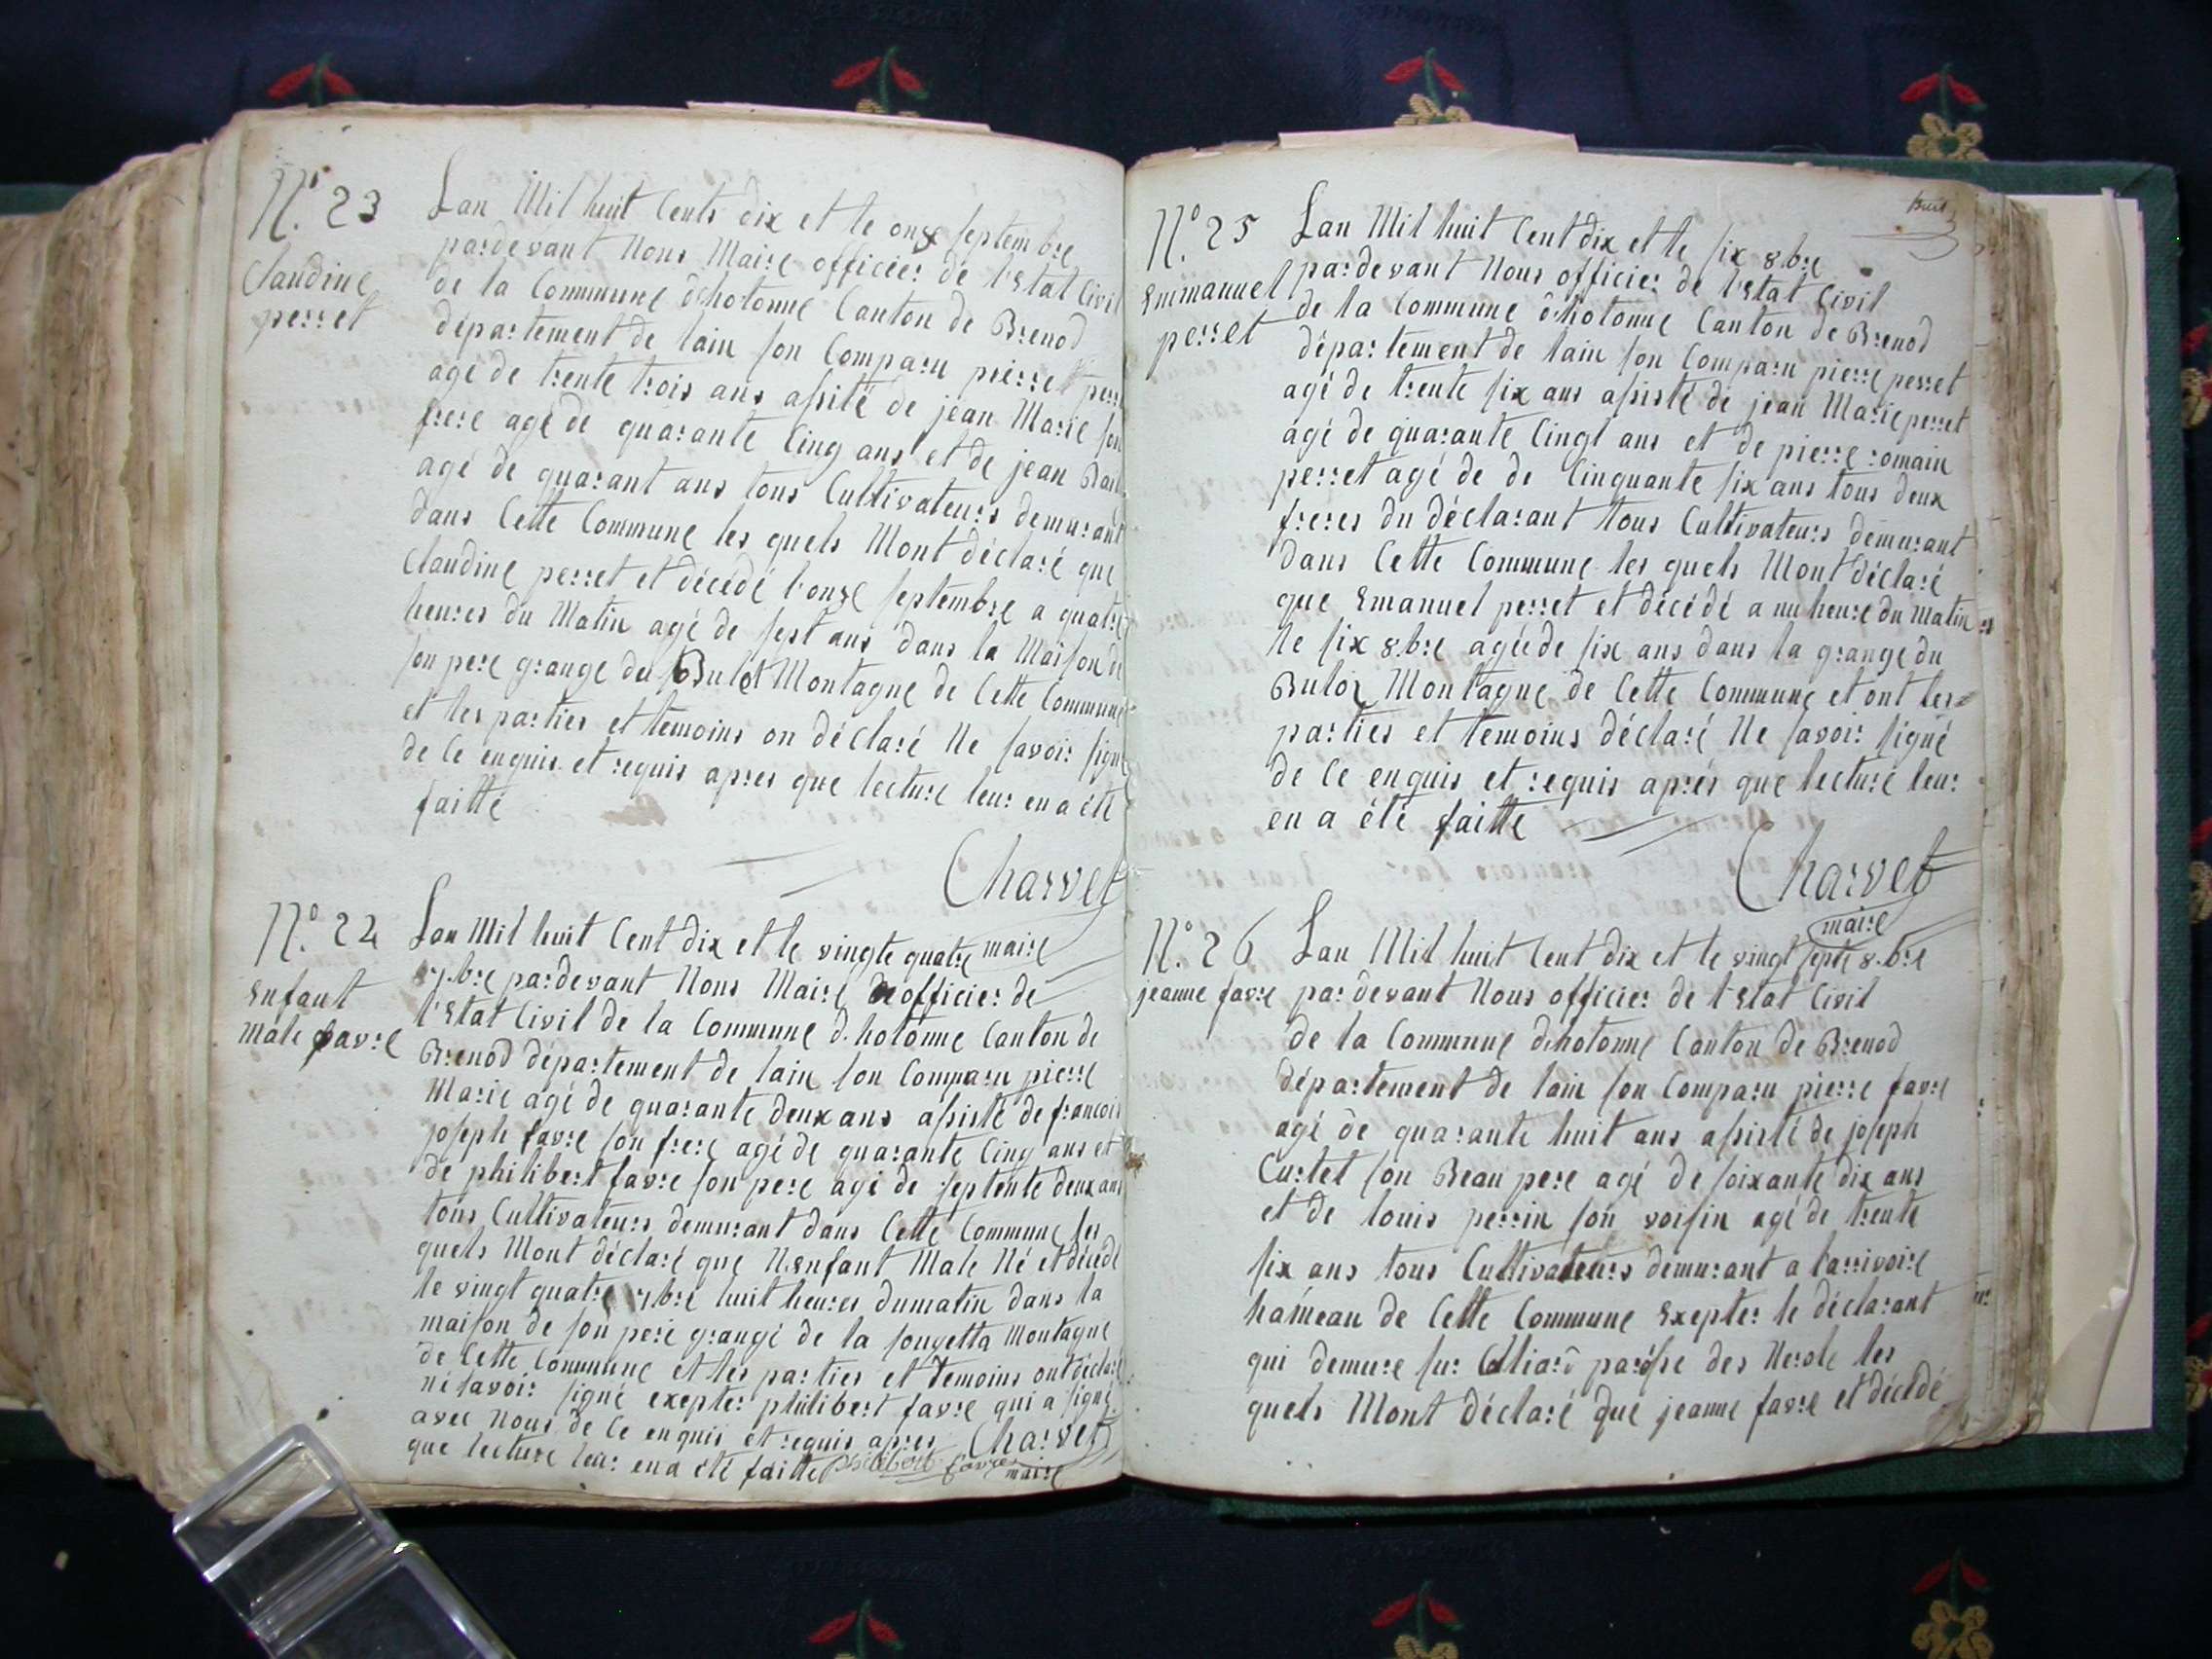 N.° 23
Claudine
perret
Lan Mil huit Cents dix et le onze septembre
pardevant Nous Maire officier de l'Etat Civil
de la Commune d'hotonne Canton de Brenod
département de lain son Comparu pierre
agé de trente trois ans assité de jean Marie son
frere agé de quarante Cinq ans et de jean
agé de quarant ans tous Cultivateurs demurant
dans Cette Commune les quels Mont déclaré que
Claudine perret et décédé l'onze septembre a quatre
heures du Matin agé de sept ans dans la Maison de
son pere grange du Montagne de Cette Commune
et les parties et temoins on déclaré Ne savoir signé
de Ce enquis et requis apres que lecture leur en a été
faitte
Charvet
maire
N.° 24
Enfant
Male favre
Lan Mil huit Cent dix et le vingte quatre
7.bre pardevant Nous Maire officier de
l'Etat Civil de la Commune d'hotonne Canton de
Brenod département de lain son Comparu pierre
Marie agé de quarante deux ans assisté de francois
joseph favre son frere agé de quarante Cinq ans et
de philibert favre son pere agé de septente deux ans
tous Cultivateurs demurant dans Cette Commune les
quels Mont déclaré que N. enfant Male Né et décédé
le vingt quatre 7bre huit heures dumatin dans la
maison de son pere grange de la sougetta Montagne
de Cette Commune et les parties et temoins ont déclaré
ne savoir signé exepter philibert favre qui a signé
avec nous de Ce enquis et requis apres
que lecture leur en a été faitte philibert favre
Charvet
maire
N.° 25
Emmanuel
perret
Lan Mil huit Cent dix et le six 8.bre
pardevant Nous officier de l'Etat Civil
de la Commune d'hotonne Canton de Brenod
département de lain son Comparu pierre perret
agé de trente six ans assisté de jean Marie perret
agé de quarante Cinqt ans et de pierre romain
perret agé de de Cinquante six ans tous deux
freres du déclarant tous Cultivateurs démurant
dans Cette Commune les quels Mont déclaré
que Emanuel perret et décédé a nu heure du Matin
le six 8.bre agée de six ans dans la grange du
Buloz Montagne de Cette Commune et ont les
parties et temoins déclaré Ne savoir signé
de Ce enquis et requis aprés que lecture leur
en a été faitte
Charvet
maire
N.° 26
jeanne favre
Lan Mil huit Cent dix et le vingt septe 8.bre
pardevant Nous officier de l'Etat Civil
de la Commune d'hotonne Canton de Brenod
département de lain son Comparu pierre favre
agé de quarante huit ans assisté de joseph
Curtet son Beau pere agé de soixante dix ans
et de louis perrin son voisin agé de trente
six ans tous Cultivateurs demurant a larrivoire
hameau de Cette Commune Exepter le déclarant
qui demure sur des Nerole les
quels Mont déclaré que jeanne favre et décédé